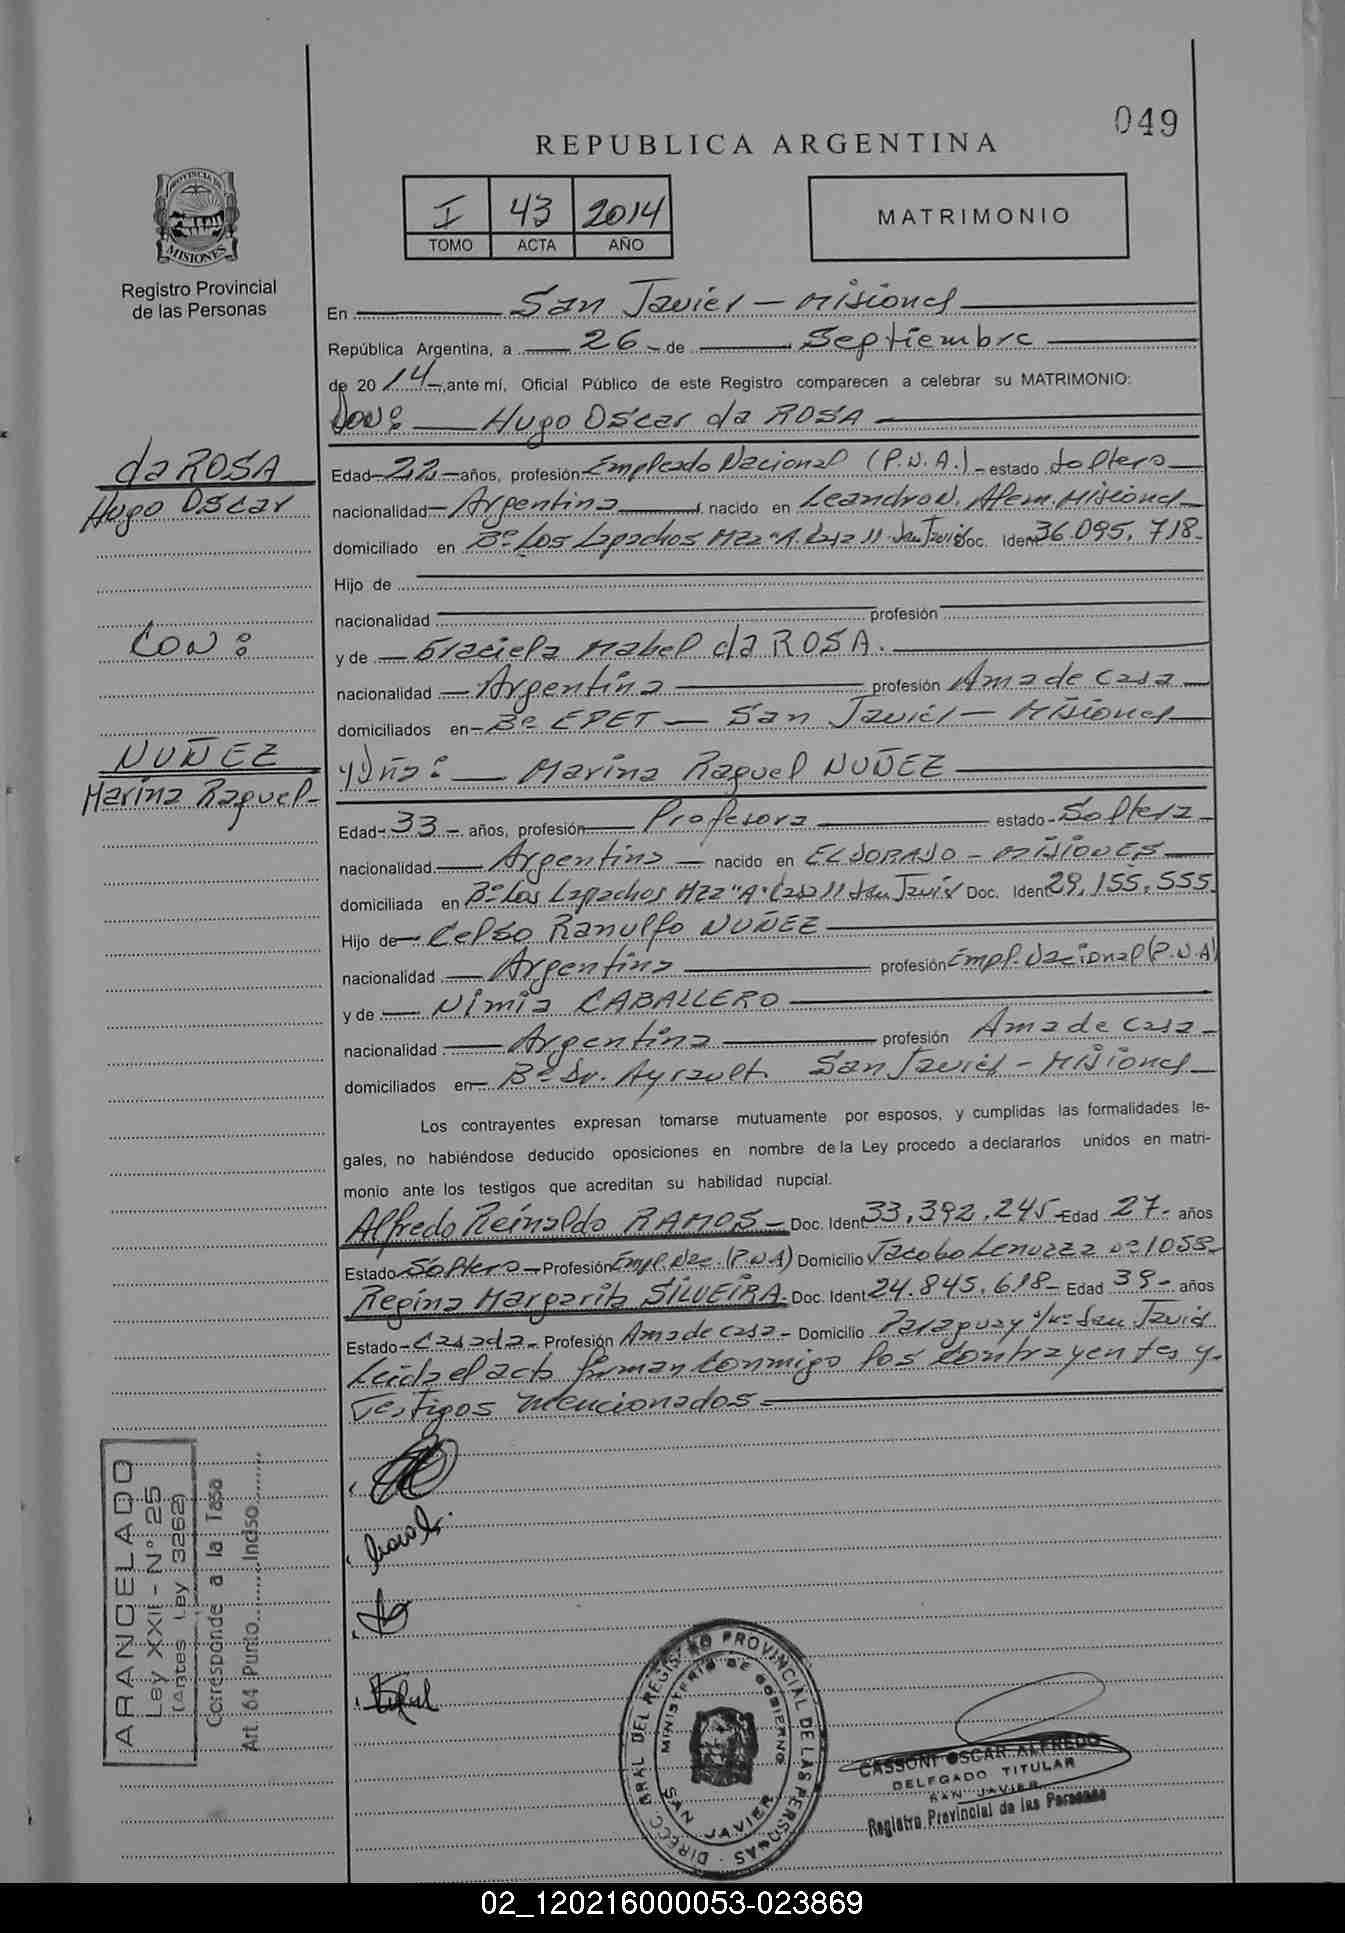 049
REPUBLICA ARGENTINA
I 43 2014
TOMO ACTA AÑO
MATRIMONIO
PROVINCIA DE
MISIONES
Registro Provincial
de las Personas
da ROSA
Hugo Oscar
CON:
NUÑEZ
Marina Raquel-
En San Javier - Misiones
República Argentina, a 26 - de Septiembre
de 20 14-, ante mí, Oficial Público de este Registro comparecen a celebrar su MATRIMONIO:
Don: Hugo Oscar da ROSA -
Edad-22-años, profesión Empleado Nacional (P.N.A.)- estado Soltero
nacionalidad-Argentina nacido en Leandro N. Alem. Misiones
domiciliado en Bº Los Lapachos Mzz "A. Casa 11. San Javier Doc. Ident 36.095.718-
Hijo de
nacionalidad profesión
y de - Graciela Mabel da ROSA.
nacionalidad - Argentina profesión Ama de Casa
domiciliados en- Bº EPET - San Javier - Misiones
y Dña: Marina Raquel NUÑEZ
Edad-33- años, profesión Profesora estado-Soltera
nacionalidad Argentina - nacido en ELDORADO - MISIONES
domiciliada en Bº Los Lapachos Mzz "A. Casa 11 San Javier Doc. Ident 29.155.555.
Hijo de- Celso Ranulfo NUÑEZ
nacionalidad Argentina profesión Empl. Nacional (P.N.A)
y de Nimia CABALLERO
nacionalidad Argentina profesión Ama de Casa-
domiciliados en- Bº Dr. Ayrault. San Javier - Misiones
Los contrayentes expresan tomarse mutuamente por esposos, y cumplidas las formalidades le-
gales, no habiéndose deducido oposiciones en nombre de la Ley procedo a declararlos unidos en matri-
monio ante los testigos que acreditan su habilidad nupcial.
Alfredo Reinaldo RAMOS- Doc. Ident 33.392.245- Edad 27- años
Estado Soltero-Profesión Empl. Nac. (P.N.A) Domicilio Jacobo nº 1055-
Regina Margarita SILVEIRA- Doc. Ident 24.845.618- Edad 39- años
Estado-Casada- Profesión Ama de casa- Domicilio Paraguay s/nº San Javier
Leida el acta firman conmigo los contrayentes y-
testigos mencionados
ARANCELADO
Ley XXII - Nº 25
(Antes Ley 3262)
Corresponde a la Tasa
Art. 64 Punto Inciso
DIRECC. GRAL DEL REGISTRO PROVINCIAL DE LAS PERSONAS
MINISTERIO DE GOBIERNO
SAN JAVIER
CASSONI OSCAR ALFREDO
DELEGADO TITULAR
SAN JAVIER
Registro Provincial de las Personas
02_120216000053-023869